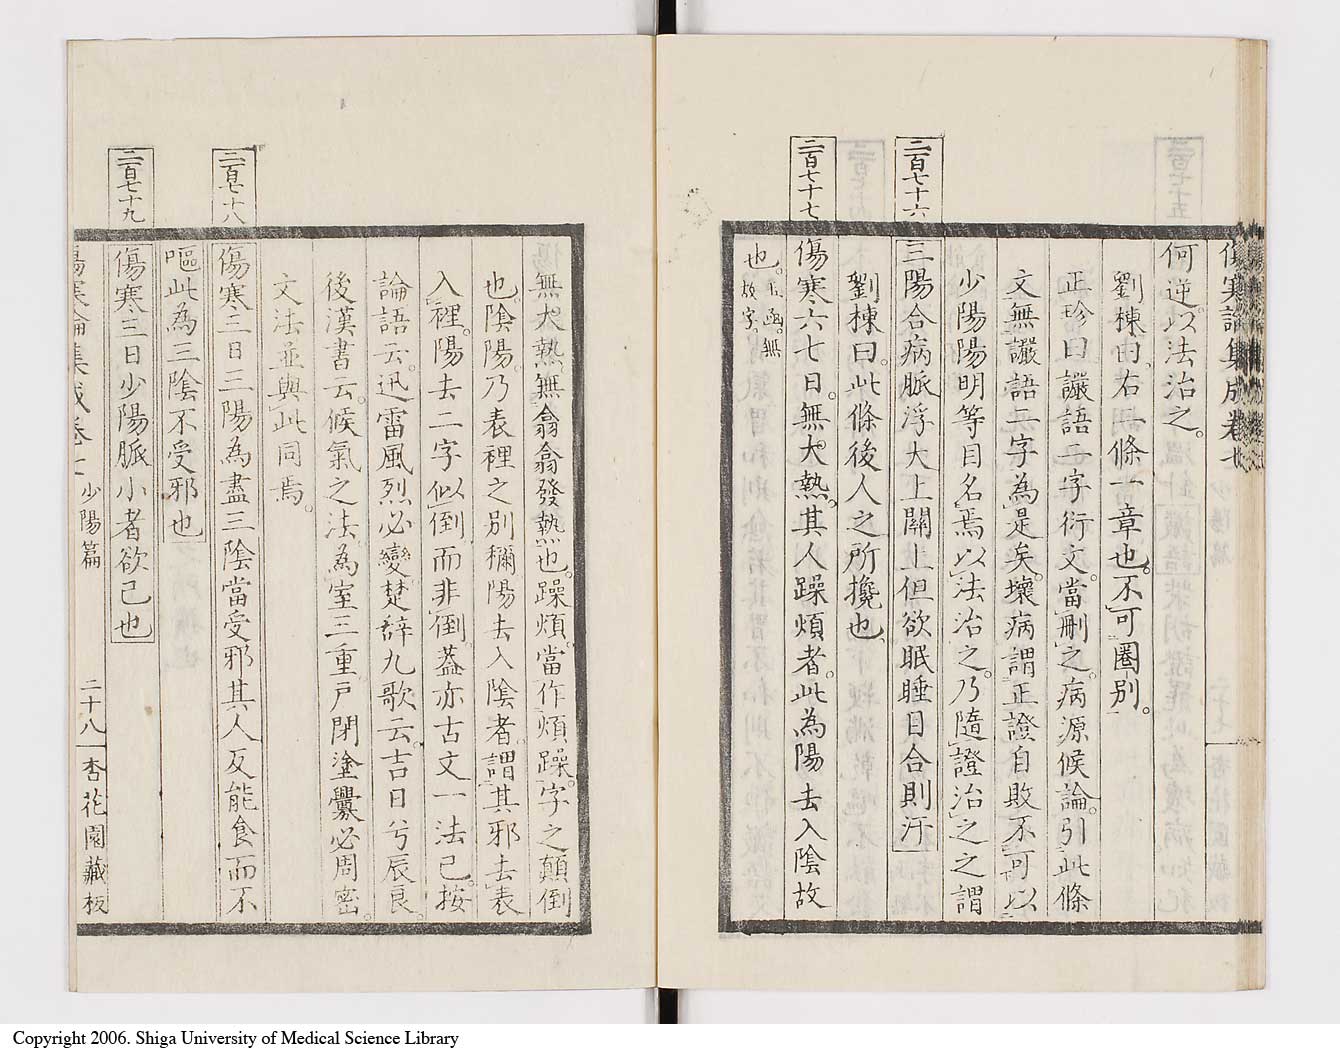 傷寒論集成卷七
何逆。以法治之。
劉棟曰。右二條一章也。不可圈別。
正珍曰。讝語二字衍文。當刪之。病源候論。引此條
文。無讝語二字。為是矣。壞病。謂正證自敗。不可以
少陽陽明等目名焉。以法治之。乃隨證治之之謂
二百七十六
三陽合病脈浮大上關上但欲眠睡目合則汗
劉棟曰。此條後人之所攙也
二百七十七
傷寒六七日。無大熱。其人躁煩者。此為陽去入陰故
也。玉函。無故字。
無大熱。無翕翕發熱也。躁煩。當作煩躁。字之顛倒
也。陰陽。乃表裡之別稱。陽去入陰者。謂其邪去表
入裡。陽去二字。似倒而非倒。蓋亦古文一法已。按
論語云。迅雷風烈必變。楚辭九歌云。吉日兮辰良。
後漢書云。候氣之法。為室三重。戶閉。塗釁必周密。
文法並與此同焉。
二百七十八
傷寒三日三陽為盡三陰當受邪其人反能食而不
嘔此為三陰不受邪也
二百七十九
傷寒三日少陽脈小者欲已也
傷寒論集成卷七 少陽篇 二十八 杏花園藏板
Copyright 2006. Shiga University of Medical Science Library